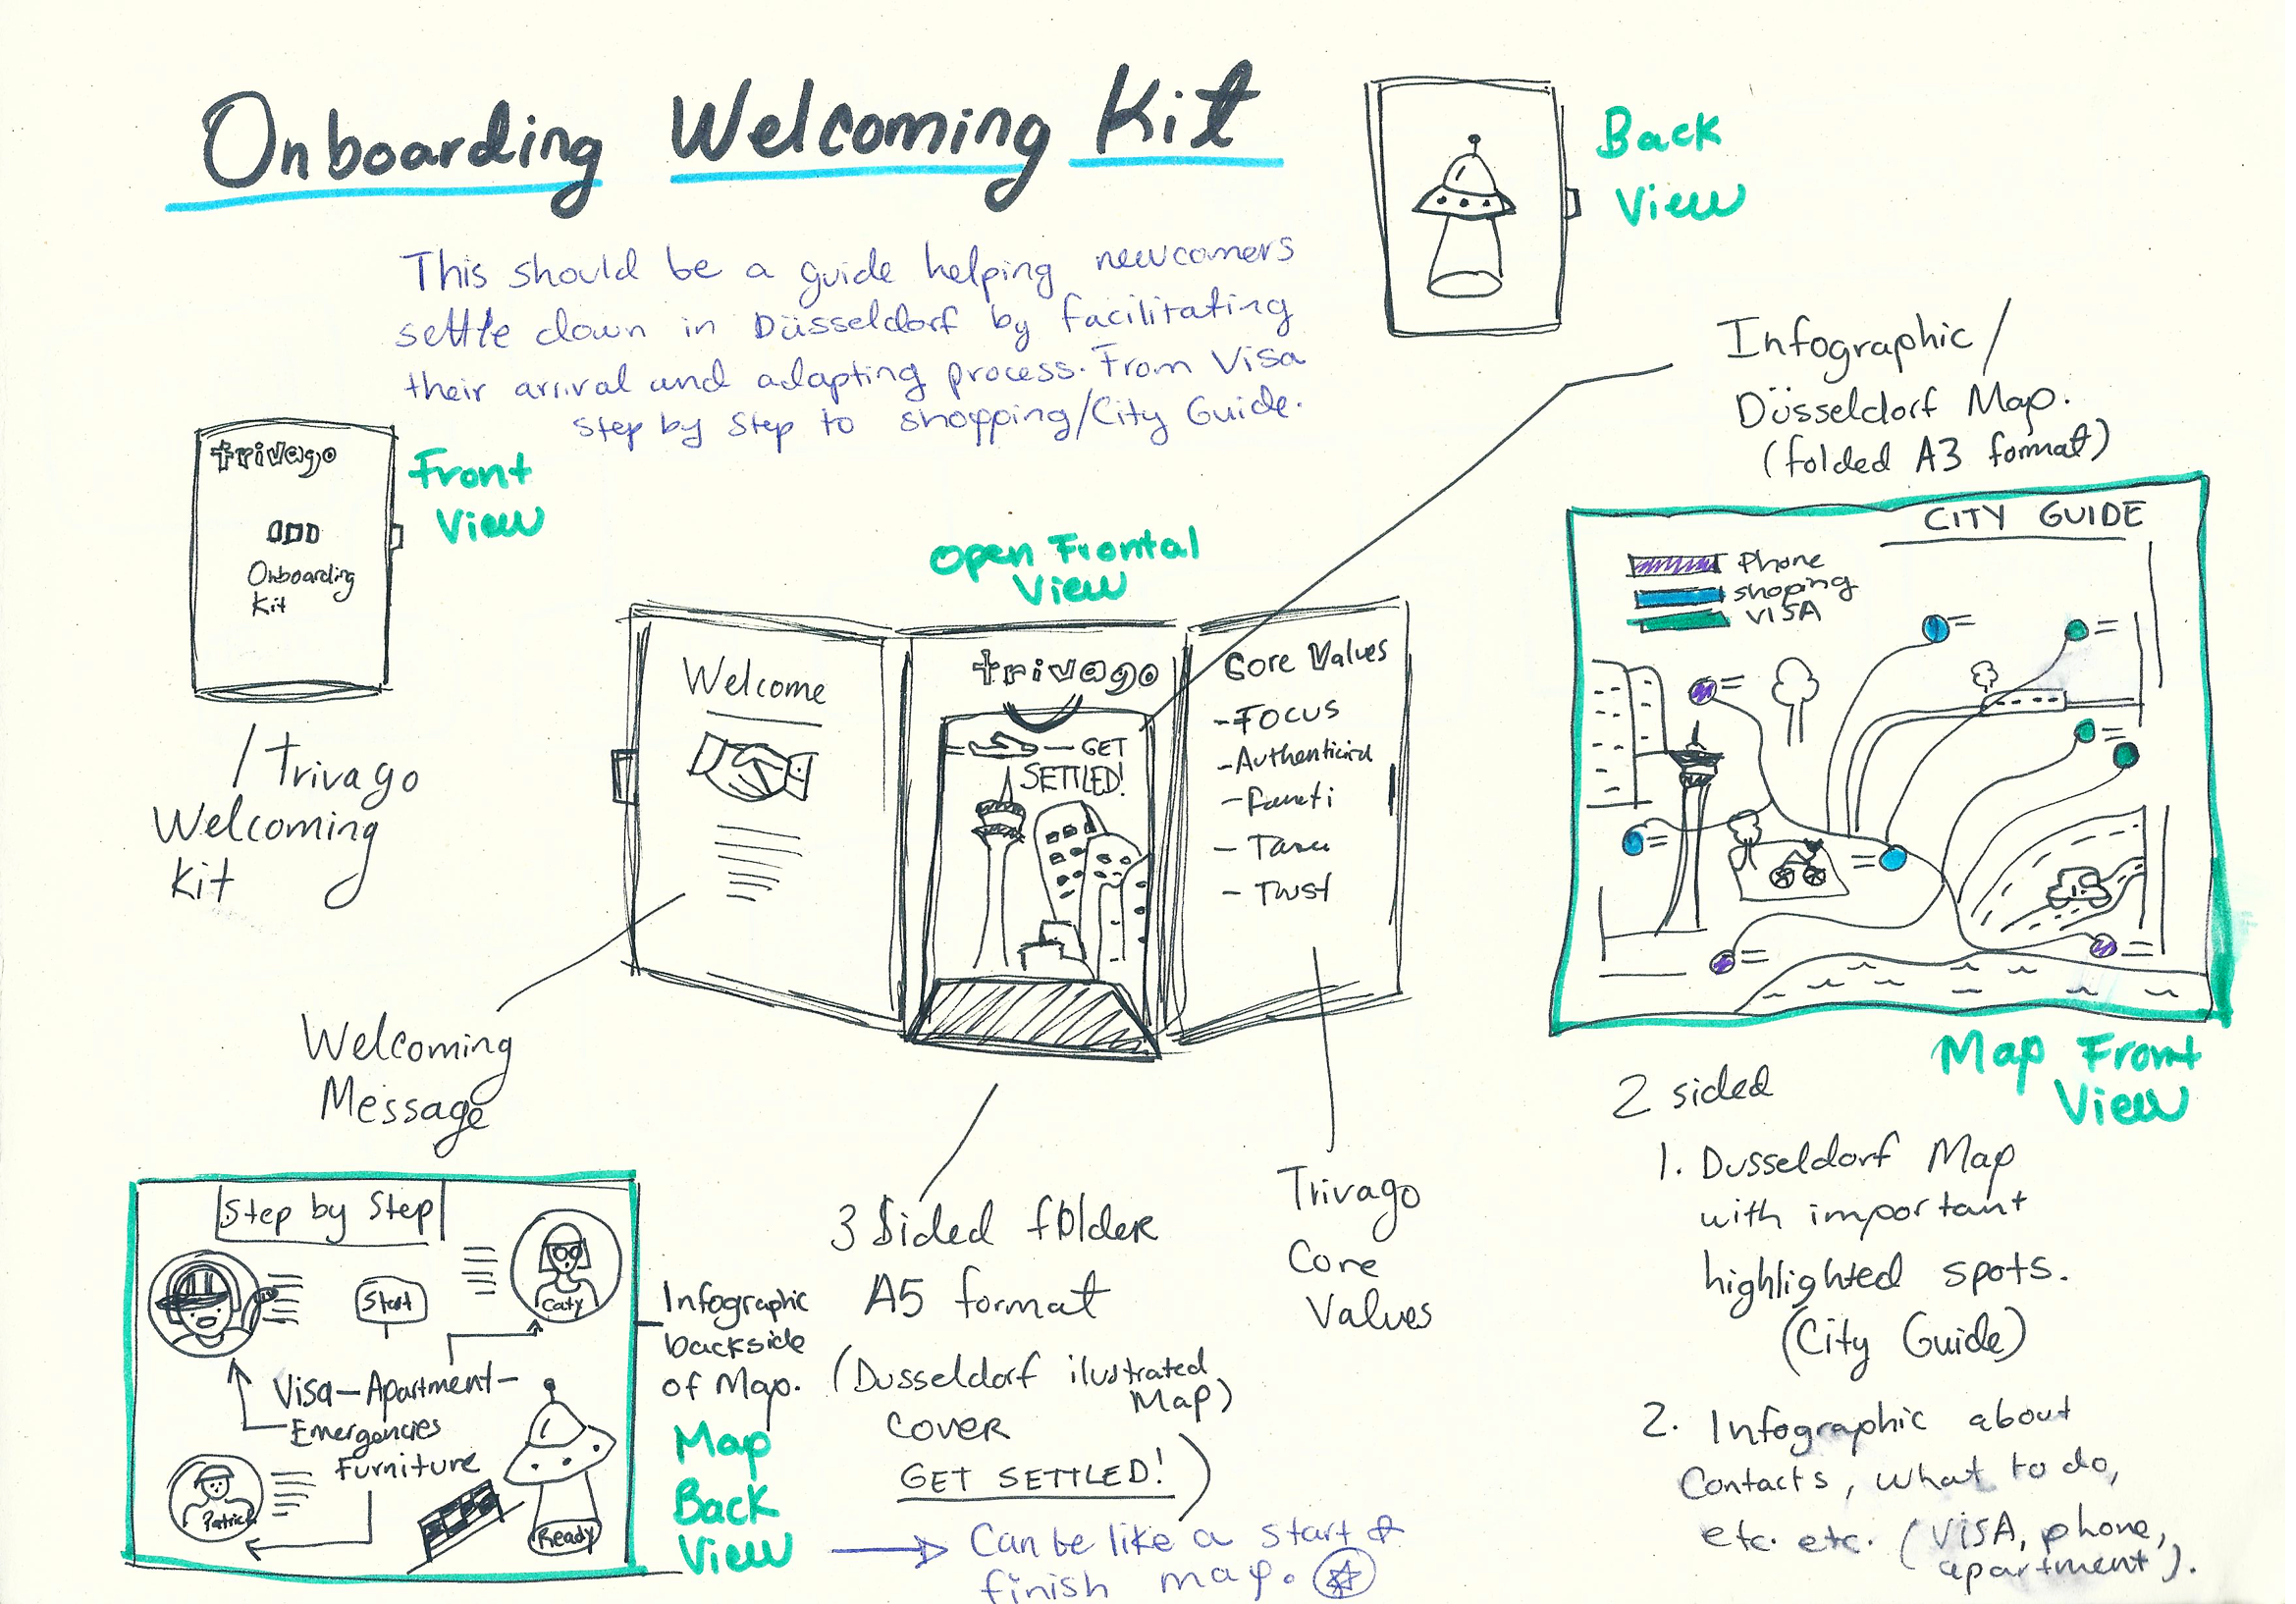 Onboarding Welcoming Kit
This should be a guide helping newcomers
settle down in Düsseldorf by facilitating
their arrival and adapting process. From Visa
step by step to shopping/City Guide.
Back
View
trivago
Onboarding
Kit
Front
View
Trivago
Welcoming
Kit
Open Frontal
View
Welcome
trivago
GET
SETTLED!
Core Values
- Focus
- Fanati
- Trust
Welcoming
Message
3 Sided folder
A5 format
(Dusseldorf ilustrated
Map)
COVER
GET SETTLED!)
Trivago
Core
Values
Infographic/
Düsseldorf Map.
(folded A3 format)
CITY GUIDE
Phone
shoping
VISA
Map Front
View
2 sided
1. Dusseldorf Map
with important
highlighted spots.
(City Guide)
2. Infographic about
Contacts, what to do,
etc. etc. (VISA, phone,
apartment).
Step by Step
Start
Caty
Visa-Apartment-
Emergencies
Furniture
Patrick
Ready
Infographic
backside
of Map.
Map
Back
View
Can be like a start &
finish map.